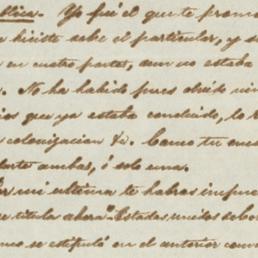 blica. Yo fuí el que te prome
hiciste sobre el particular, y s
en cuatro partes, aun no estaba
. No ha habido pues olvido nin
ios que ya estaba concluido, lo
colonizacion &. Como tu
ambas, ó solo una.
mi ultima te habras impues
e titula ahora "Estados unidos de
como se estipuló en el anterior con